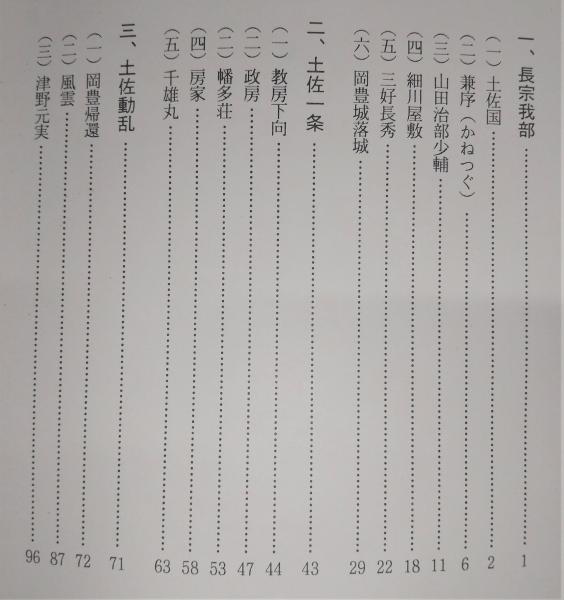 一、長宗我部……………………1
（一）土佐国……………………2
（二）兼序（かねつぐ）……………………6
（三）山田治部少輔……………………11
（四）細川屋敷……………………18
（五）三好長秀……………………22
（六）岡豊城落城……………………29
二、土佐一条……………………43
（一）教房下向……………………44
（二）政房……………………47
（二）幡多荘……………………53
（四）房家……………………58
（五）千雄丸……………………63
三、土佐動乱……………………71
（一）岡豊帰還……………………72
（二）風雲……………………87
（三）津野元実……………………96